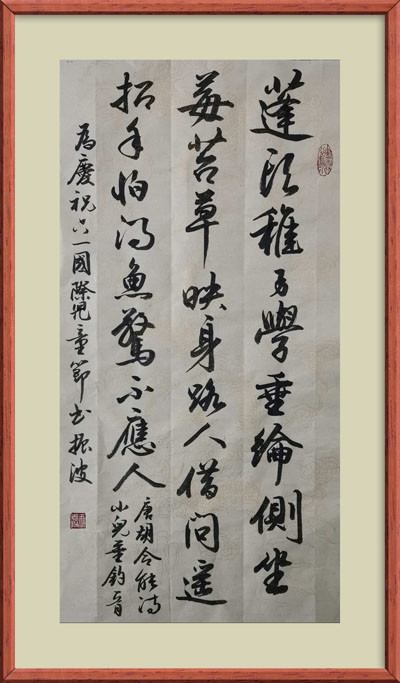 蓬頭稚子學垂綸側坐
莓苔草映身路人借問遙
招手怕得魚驚不應人
唐胡令能詩
小兒垂釣一首
為慶祝六一國際兒童節書振波